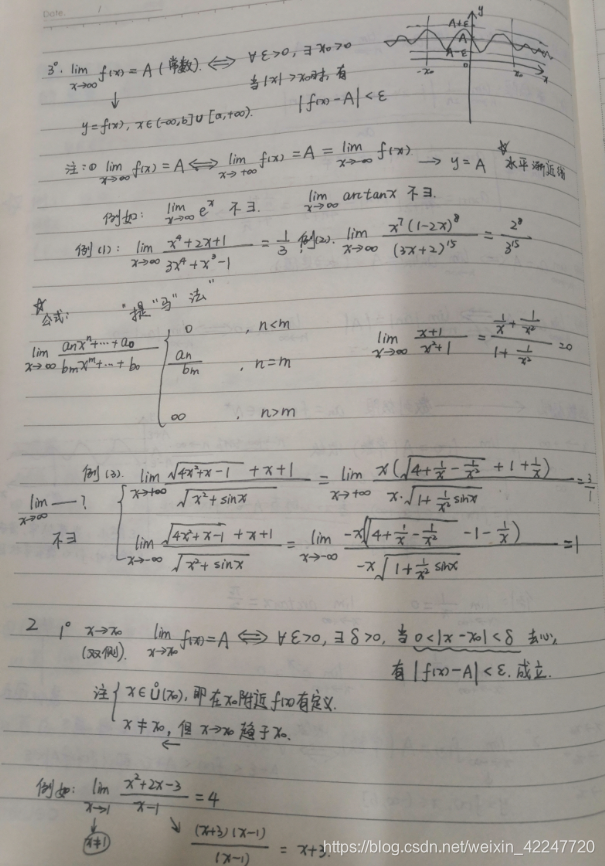 Date. /
3°. lim x→∞ f(x) = A (常数). ⟺ ∀ε>0, ∃x₀>0
当|x|>x₀时, 有
|f(x)-A|<ε
↓
y=f(x), x∈(-∞,b]∪[a,+∞).
y A+ε A A-ε -x₀ 0 x₀ x
注:① lim x→∞ f(x) = A ⟺ lim x→+∞ f(x) = A = lim x→-∞ f(x) → y=A ☆ 水平渐近线
例如: lim x→∞ eˣ 不∃. lim x→∞ arctanx 不∃.
例(1): lim x→∞ (x⁴+2x+1)/(3x⁴+x³-1) = 1/3 例(2). lim x→∞ x⁷(1-2x)⁸/(3x+2)¹⁵ = 2⁸/3¹⁵
☆ 公式: "提"马"法"
lim x→∞ (aₙxⁿ+…+a₀)/(bₘxᵐ+…+b₀) { 0, n<m
aₙ/bₘ, n=m
∞, n>m
lim x→∞ (x+1)/(x²+1) = (1/x+1/x²)/(1+1/x²) = 0
例(3). lim x→+∞ (√(4x²+x-1)+x+1)/√(x²+sinx) = lim x→+∞ x(√(4+1/x-1/x²)+1+1/x)/(x·√(1+1/x² sinx)) = 3/1
lim x→∞ —? 不∃
lim x→-∞ (√(4x²+x-1)+x+1)/√(x²+sinx) = lim x→-∞ -x(√(4+1/x-1/x²)-1-1/x)/(-x√(1+1/x² sinx)) = 1
2 1° x→x₀ (双侧). lim x→x₀ f(x)=A ⟺ ∀ε>0, ∃δ>0, 当0<|x-x₀|<δ 去心,
有|f(x)-A|<ε.成立.
注 { x∈Ů(x₀), 即在x₀附近f(x)有定义.
x≠x₀, 但x→x₀ 趋于x₀.
例如: lim x→1 (x²+2x-3)/(x-1) = 4
x≠1 (x+3)(x-1)/(x-1) = x+3.
https://blog.csdn.net/weixin_42247720